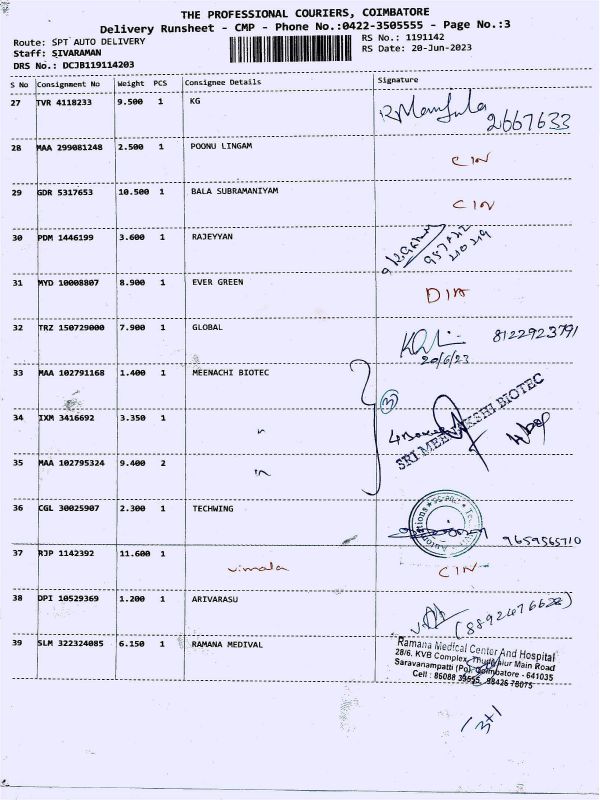 THE PROFESSIONAL COURIERS, COIMBATORE
Delivery Runsheet - CMP - Phone No.:0422-3505555 - Page No.:3
Route: SPT AUTO DELIVERY
Staff: SIVARAMAN
DRS No.: DCJB119114203
RS No.: 1191142
RS Date: 20-Jun-2023
S No Consignment No Weight PCS Consignee Details Signature
27 TVR 4118233 9.500 1 KG
2667633
28 MAA 299081248 2.500 1 POONU LINGAM CIN
29 GDR 5317653 10.500 1 BALA SUBRAMANIYAM CIN
30 PDM 1446199 3.600 1 RAJEYYAN
31 MYD 10008807 8.900 1 EVER GREEN DIA
32 TRZ 150729000 7.900 1 GLOBAL 8122923791
20/6/23
33 MAA 102791168 1.400 1 MEENACHI BIOTEC
3
SRI MEENAKSHI BIOTEC
34 IXM 3416692 3.350 1 "
35 MAA 102795324 9.400 2
36 CGL 30025907 2.300 1 TECHWING
9659565710
37 RJP 1142392 11.600 1 vimala CIN
38 DPI 10529369 1.200 1 ARIVARASU
39 SLM 322324085 6.150 1 RAMANA MEDIVAL
Ramana Medical Center And Hospital
28/6. KVB Complex, Thudialur Main Road
Saravanampatti (Po), Coimbatore - 641035
Cell :